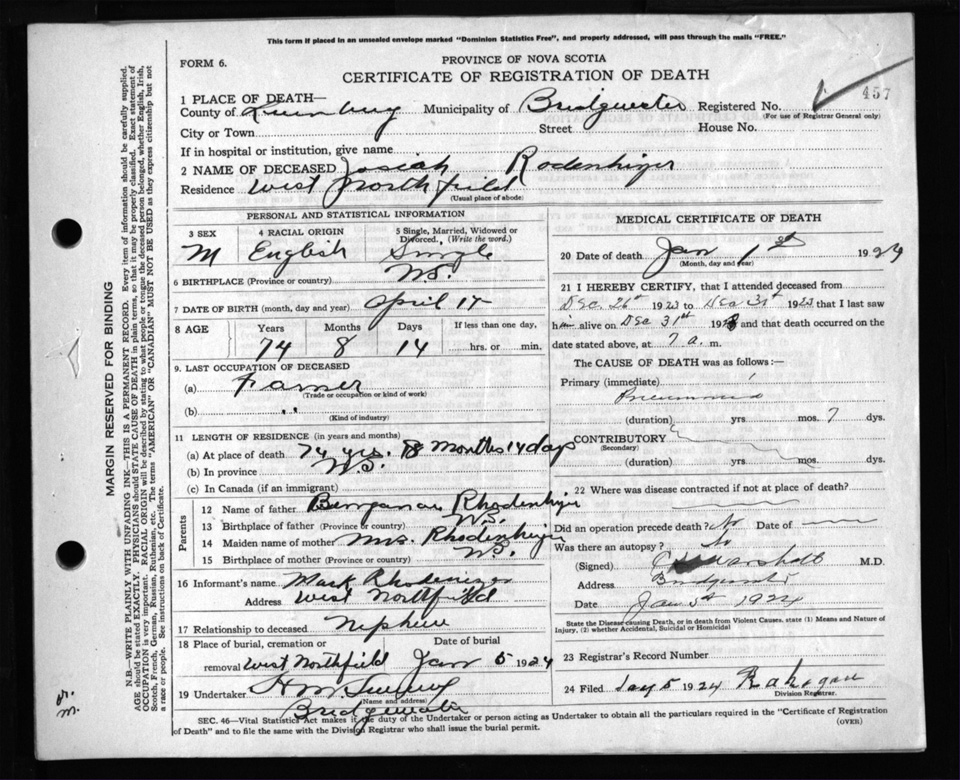 This form if placed in an unsealed envelope marked "Dominion Statistics Free", and properly addressed, will pass through the mails "FREE."
FORM 6.
PROVINCE OF NOVA SCOTIA
CERTIFICATE OF REGISTRATION OF DEATH
457
1 PLACE OF DEATH—
County of Lunenburg Municipality of Bridgewater Registered No.
(For use of Registrar General only)
City or Town Street House No.
If in hospital or institution, give name
2 NAME OF DECEASED Josiah Rodenhizer
Residence West Northfield
(Usual place of abode)
PERSONAL AND STATISTICAL INFORMATION
3 SEX 4 RACIAL ORIGIN 5 Single, Married, Widowed or Divorced. (Write the word.)
M English Single
6 BIRTHPLACE (Province or Country) N.S.
7 DATE OF BIRTH (month, day and year) April 17
8 AGE Years Months Days If less than one day,
74 8 14 hrs. or min.
9. LAST OCCUPATION OF DECEASED
(a) Farmer
(Trade or occupation or kind of work)
(b) " "
(Kind of industry)
11 LENGTH OF RESIDENCE (in years and months)
(a) At place of death 74 yrs. 8 months 14 days
(b) In province N.S.
(c) In Canada (if an immigrant)
Parents
12 Name of father Benjamin Rhodenhizer
13 Birthplace of father (Province or country) N.S.
14 Maiden name of mother Mrs. Rhodenhizer
15 Birthplace of mother (Province or country) N.S.
16 Informant's name Mark Rhodenizer
Address West Northfield
17 Relationship to deceased Nephew
18 Place of burial, cremation or removal Date of burial
West Northfield Jan 5 1924
19 Undertaker H M
(Name and address)
Bridgewater
MEDICAL CERTIFICATE OF DEATH
20 Date of death Jan 1st 1924
(Month, day and year)
21 I HEREBY CERTIFY, that I attended deceased from
Dec 26th 1923 to Dec 31st 1923 that I last saw
him alive on Dec 31st 1923 and that death occurred on
date stated above, at 7 a. m.
The CAUSE OF DEATH was as follows:—
Primary (immediate)
Pneumonia
(duration) yrs mos. 7 dys.
CONTRIBUTORY
(Secondary)
(duration) yrs. mos. dys.
22 Where was disease contracted if not at place of death?
Did an operation precede death? No Date of
Was there an autopsy? No
(Signed) Marshall M.D.
Address Bridgewater
Date Jan 5th 1924
State the Disease causing Death, or in death from Violent Causes, state (1) Means and Nature of Injury, (2) whether Accidental, Suicidal or Homicidal
23 Registrar's Record Number
24 Filed Jany 5 1924
Division Registrar.
SEC. 46—Vital Statistics Act makes it the duty of the Undertaker or person acting as Undertaker to obtain all the particulars required in the "Certificate of Registration
of Death" and to file the same with the Division Registrar who shall issue the burial permit.
(OVER)
MARGIN RESERVED FOR BINDING
N.B.—WRITE PLAINLY WITH UNFADING INK—THIS IS A PERMANENT RECORD. Every item of information should be carefully supplied.
AGE should be stated EXACTLY. PHYSICIANS should STATE CAUSE OF DEATH in plain terms, so that it may be properly classified. Exact statement of
OCCUPATION is very important. RACIAL ORIGIN will be described by stating to what people or tongue the deceased person belonged, whether English, Irish,
Scotch, French, German, Russian, Ruthenian, etc. The terms "AMERICAN" OR "CANADIAN" MUST NOT BE USED as they express citizenship but not
a race or people. See instructions on back of Certificate.